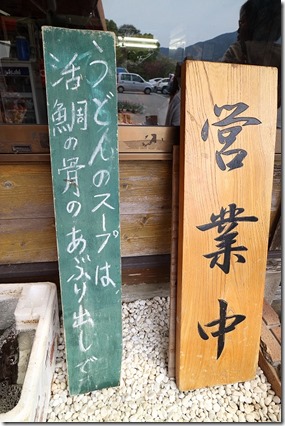 営業中
うどんのスープは、
活鯛の骨のあぶり出しで